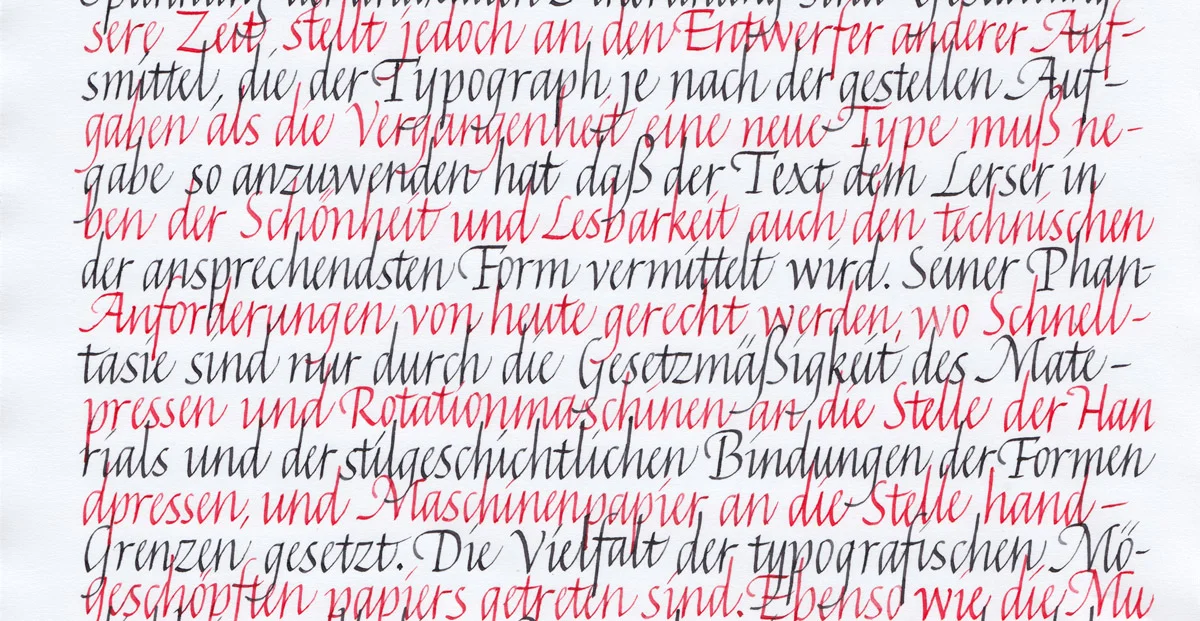 Spannung der
sere Zeit, stellt jedoch an den Entwerfer anderer Auf-
smittel, die der Typograph je nach der gestellen Auf-
gaben als die Vergangenheit eine neue Type muß ne-
gabe so anzuwenden hat daß der Text dem Lerser in
ben der Schönheit und Lesbarkeit auch den technischen
der ansprechendsten Form vermittelt wird. Seiner Phan-
Anforderungen von heute gerecht werden, wo Schnell-
tasie sind nur durch die Gesetzmäßigkeit des Mate-
pressen und Rotationmaschinen an die Stelle der Han
rials und der stilgeschichtlichen Bindungen der Formen
dpressen, und Maschinenpapier an die Stelle hand-
Grenzen gesetzt. Die Vielfalt der typografischen Mö-
geschöpften papiers getreten sind. Ebenso wie die Mu